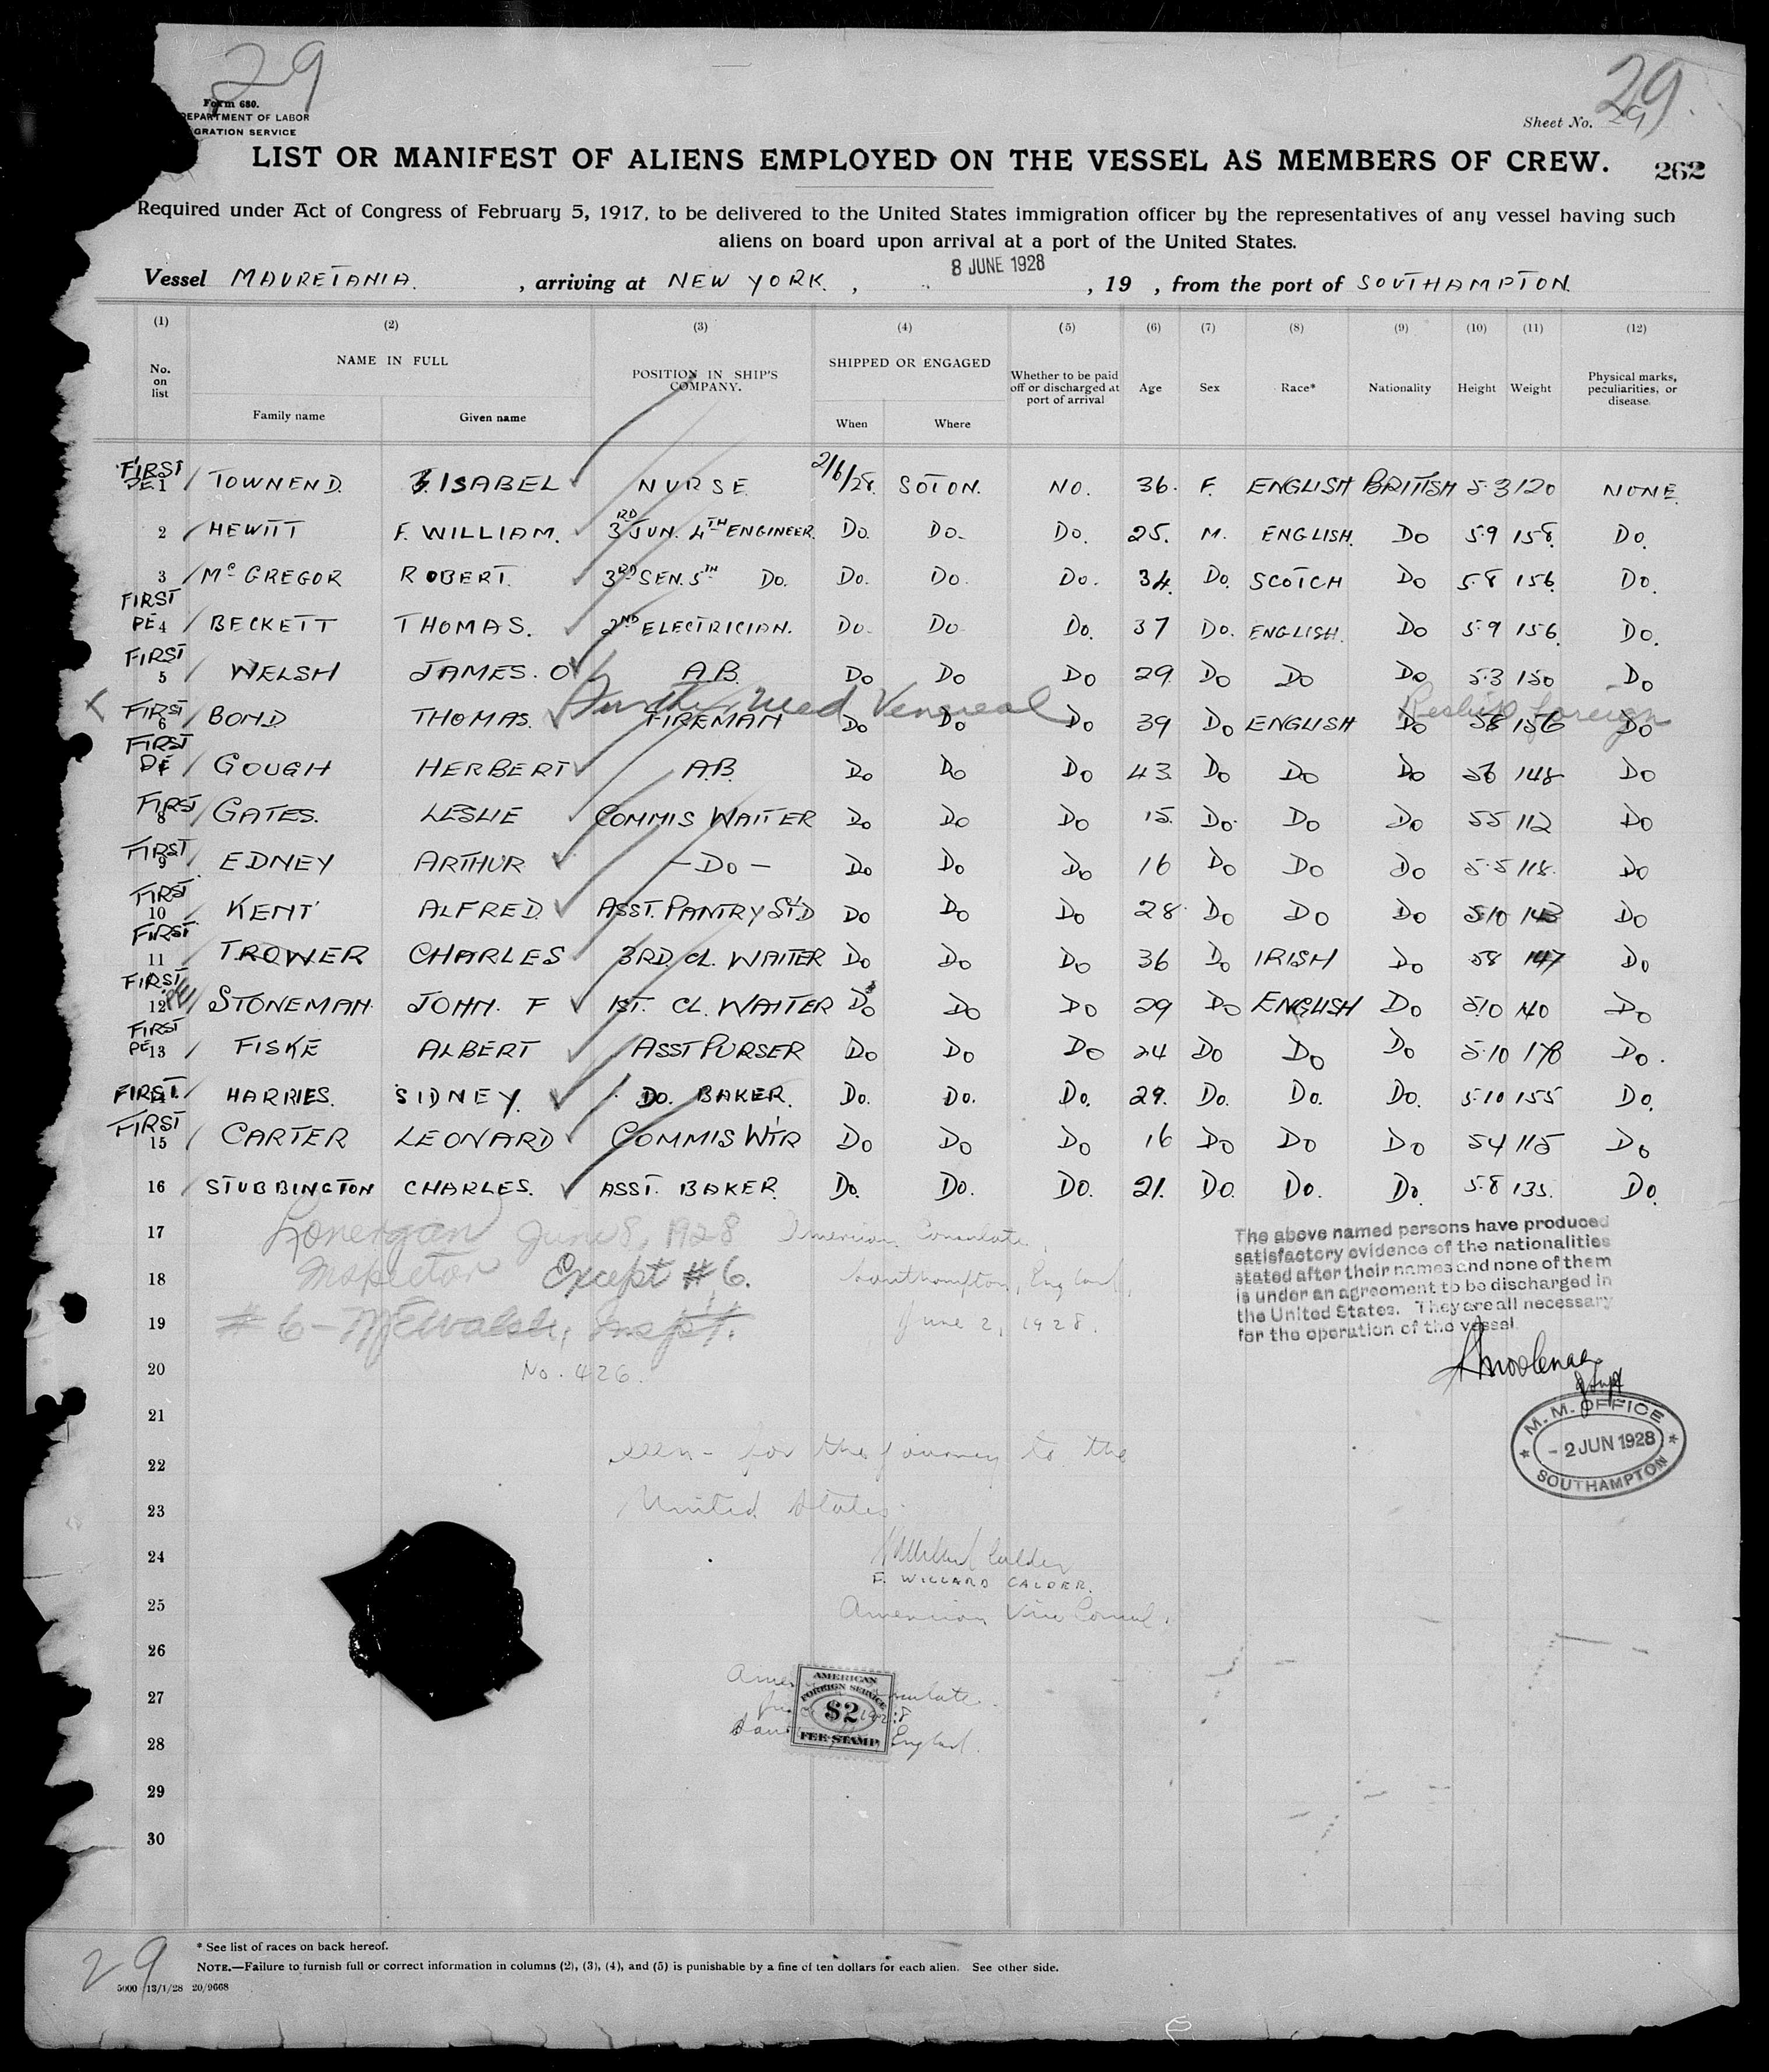 29
29
Form 680.
DEPARTMENT OF LABOR
GRATION SERVICE
Sheet No. 29
LIST OR MANIFEST OF ALIENS EMPLOYED ON THE VESSEL AS MEMBERS OF CREW.
262
Required under Act of Congress of February 5, 1917, to be delivered to the United States immigration officer by the representatives of any vessel having such
aliens on board upon arrival at a port of the United States.
Vessel MAURETANIA. , arriving at NEW YORK. , 8 JUNE 1928 , 19 , from the port of SOUTHAMPTON.
(1) (2) (3) (4) (5) (6) (7) (8) (9) (10) (11) (12)
No. on list NAME IN FULL Family name Given name POSITION IN SHIP'S COMPANY. SHIPPED OR ENGAGED When Where Whether to be paid off or discharged at port of arrival Age Sex Race* Nationality Height Weight Physical marks, peculiarities, or disease.
FIRST PE 1 TOWNEND. ISABEL NURSE 2/6/28. SOTON. NO. 36. F. ENGLISH BRITISH 5.3 120 NONE.
2 HEWITT F. WILLIAM. 3RD JUN. 4TH ENGINEER. Do. Do. Do. 25. M. ENGLISH. Do 5.9 158. Do.
3 McGREGOR ROBERT. 3RD SEN. 5TH Do. Do. Do. Do. 34. Do. SCOTCH Do 5.8 156. Do.
FIRST PE 4 BECKETT THOMAS. 2ND ELECTRICIAN. Do. Do. Do. 37 Do. ENGLISH. Do 5.9 156. Do.
FIRST 5 WELSH JAMES. O A.B. Do Do Do 29 Do Do Do 5.3 150 Do
FIRST 6 BOND THOMAS. FIREMAN Do Do Do 39 Do ENGLISH Do 58 156 Do
med Venereal
Reship foreign
FIRST PE GOUGH HERBERT A.B. Do Do Do 43 Do Do Do 56 148 Do
FIRST 8 GATES. LESLIE COMMIS WAITER Do Do Do 15. Do. Do Do 55 112 Do
FIRST 9 EDNEY ARTHUR - Do - Do Do Do 16 Do Do Do 5.5 118. Do
FIRST 10 KENT ALFRED. ASST. PANTRY STD Do Do Do 28 Do Do Do 5.10 143 Do
FIRST 11 TROWER CHARLES 3RD. CL. WAITER Do Do Do 36 Do IRISH Do 58 147 Do
FIRST 12 PE STONEMAN. JOHN. F 1ST. CL. WAITER Do Do Do 29 Do ENGLISH Do 5.10 140 Do
FIRST PE 13 FISKE ALBERT ASST PURSER Do Do Do 24 Do Do Do 5.10 178 Do.
FIRST. HARRIES. SIDNEY. Do. BAKER. Do. Do. Do. 29. Do. Do. Do. 5.10 155 Do.
FIRST 15 CARTER LEONARD COMMIS WTR Do Do Do 16 Do Do Do 54 115 Do
16 STUBBINGTON CHARLES. ASST. BAKER. Do. Do. Do. 21. Do. Do. Do. 5.8 135. Do.
17 Lonergan June 8, 1928 American Consulate,
18 Inspector Except #6. Southampton, England,
19 #6 - Inspt. June 2, 1928.
20 No. 426.
The above named persons have produced
satisfactory evidence of the nationalities
stated after their names and none of them
is under an agreement to be discharged in
the United States. They are all necessary
for the operation of the vessel
M. M. OFFICE
- 2 JUN 1928
SOUTHAMPTON
21
22 seen - for the journey to the
23 United States.
24
F. WILLARD CALDER.
25 American Vice Consul.
26
27
28
AMERICAN
FOREIGN SERVICE
$2
FEE STAMP
England.
29
30
* See list of races on back hereof.
NOTE.—Failure to furnish full or correct information in columns (2), (3), (4), and (5) is punishable by a fine of ten dollars for each alien. See other side.
29
5000 13/1/28 20/9668